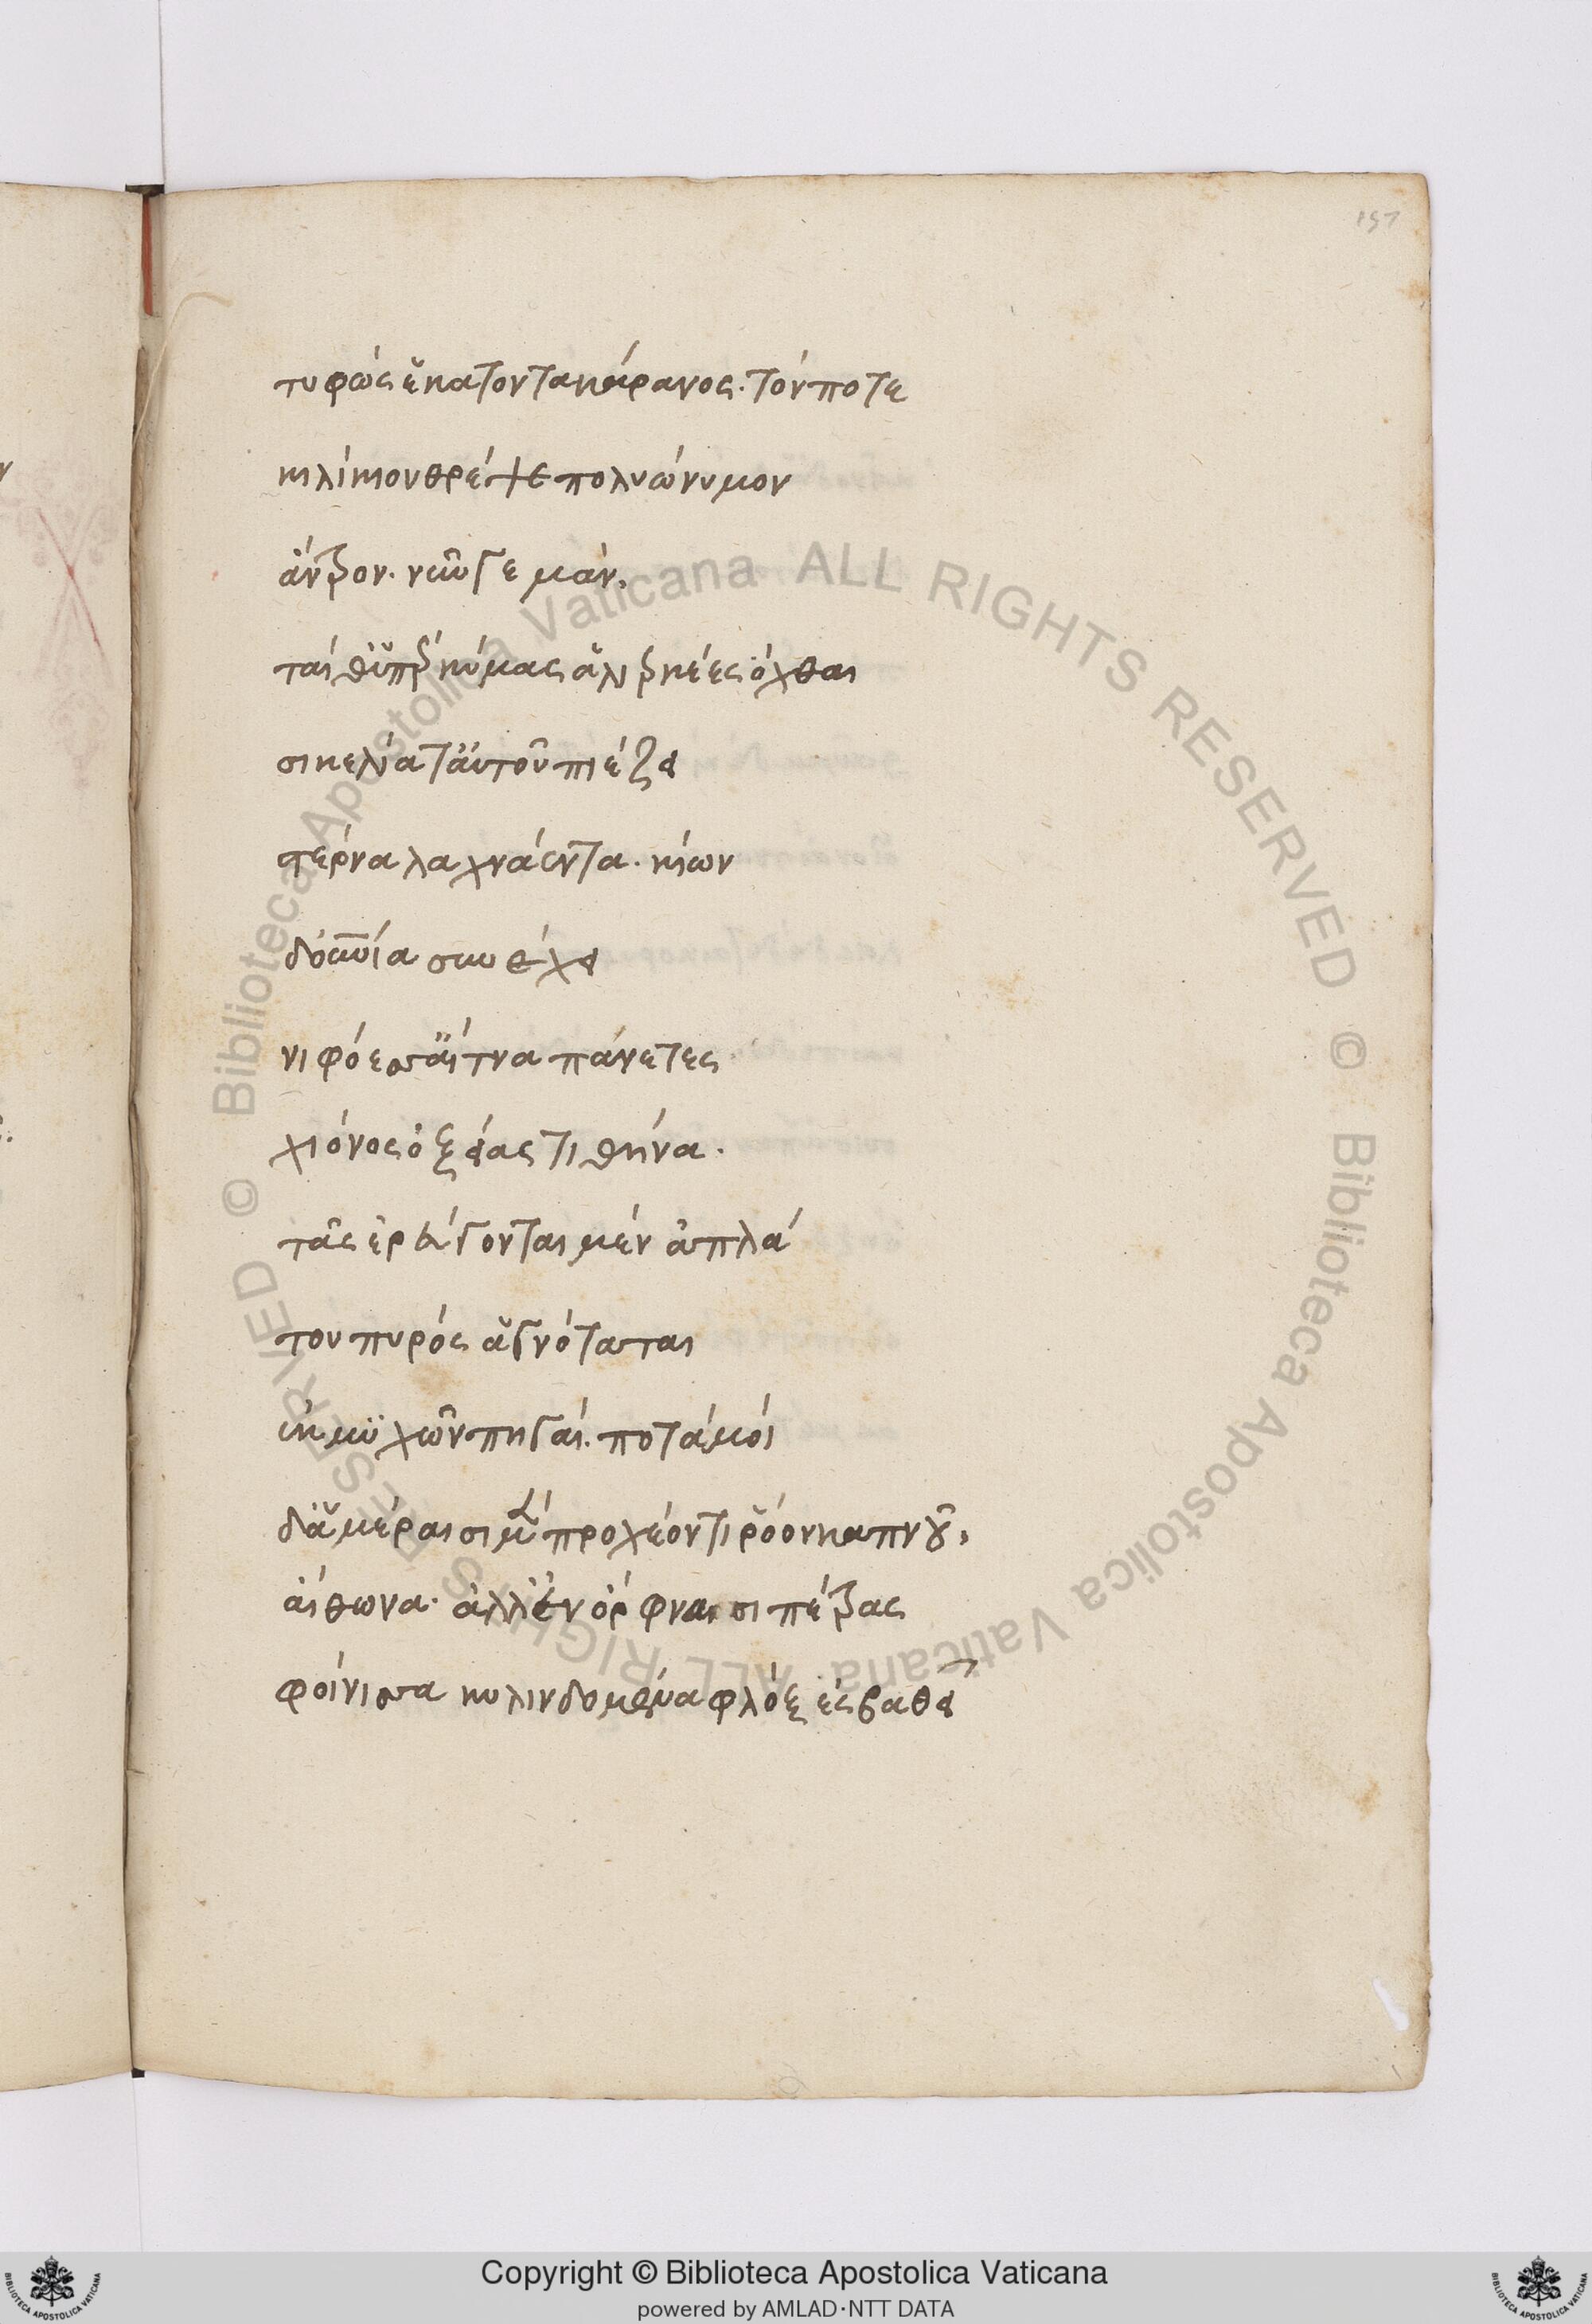 197
τυφὼς ἑκατοντακάρανος· τόν ποτε
κιλίκιον θρέψε πολυώνυμον
ἄντρον· νῦν γε μὰν,
ταί θ' ὑπὲρ κύμας ἁλιερκέες ὄχθαι
σικελία τ' αὐτοῦ πιέζει
στέρνα λαχνάεντα· κίων
δ' οὐρανία συνέχει
νιφόεσσ' αἴτνα πάνετες
χιόνος ὀξείας τιθήνα·
τᾶς ἐρεύγονται μὲν ἀπλά
του πυρὸς ἁγνόταται
ἐκ μυχῶν παγαί· ποταμοὶ
δ' ἁμέραισι μὲν προχέοντι ῥόον καπνοῦ,
αἴθων' ἀλλ' ἐν ὄρφναισι πέτρας
φοίνισσα κυλινδομένα φλὸξ ἐς βαθεῖ
Copyright © Biblioteca Apostolica Vaticana
powered by AMLAD·NTT DATA
© Biblioteca Apostolica Vaticana ALL RIGHTS RESERVED
© Biblioteca Apostolica Vaticana ALL RIGHTS RESERVED